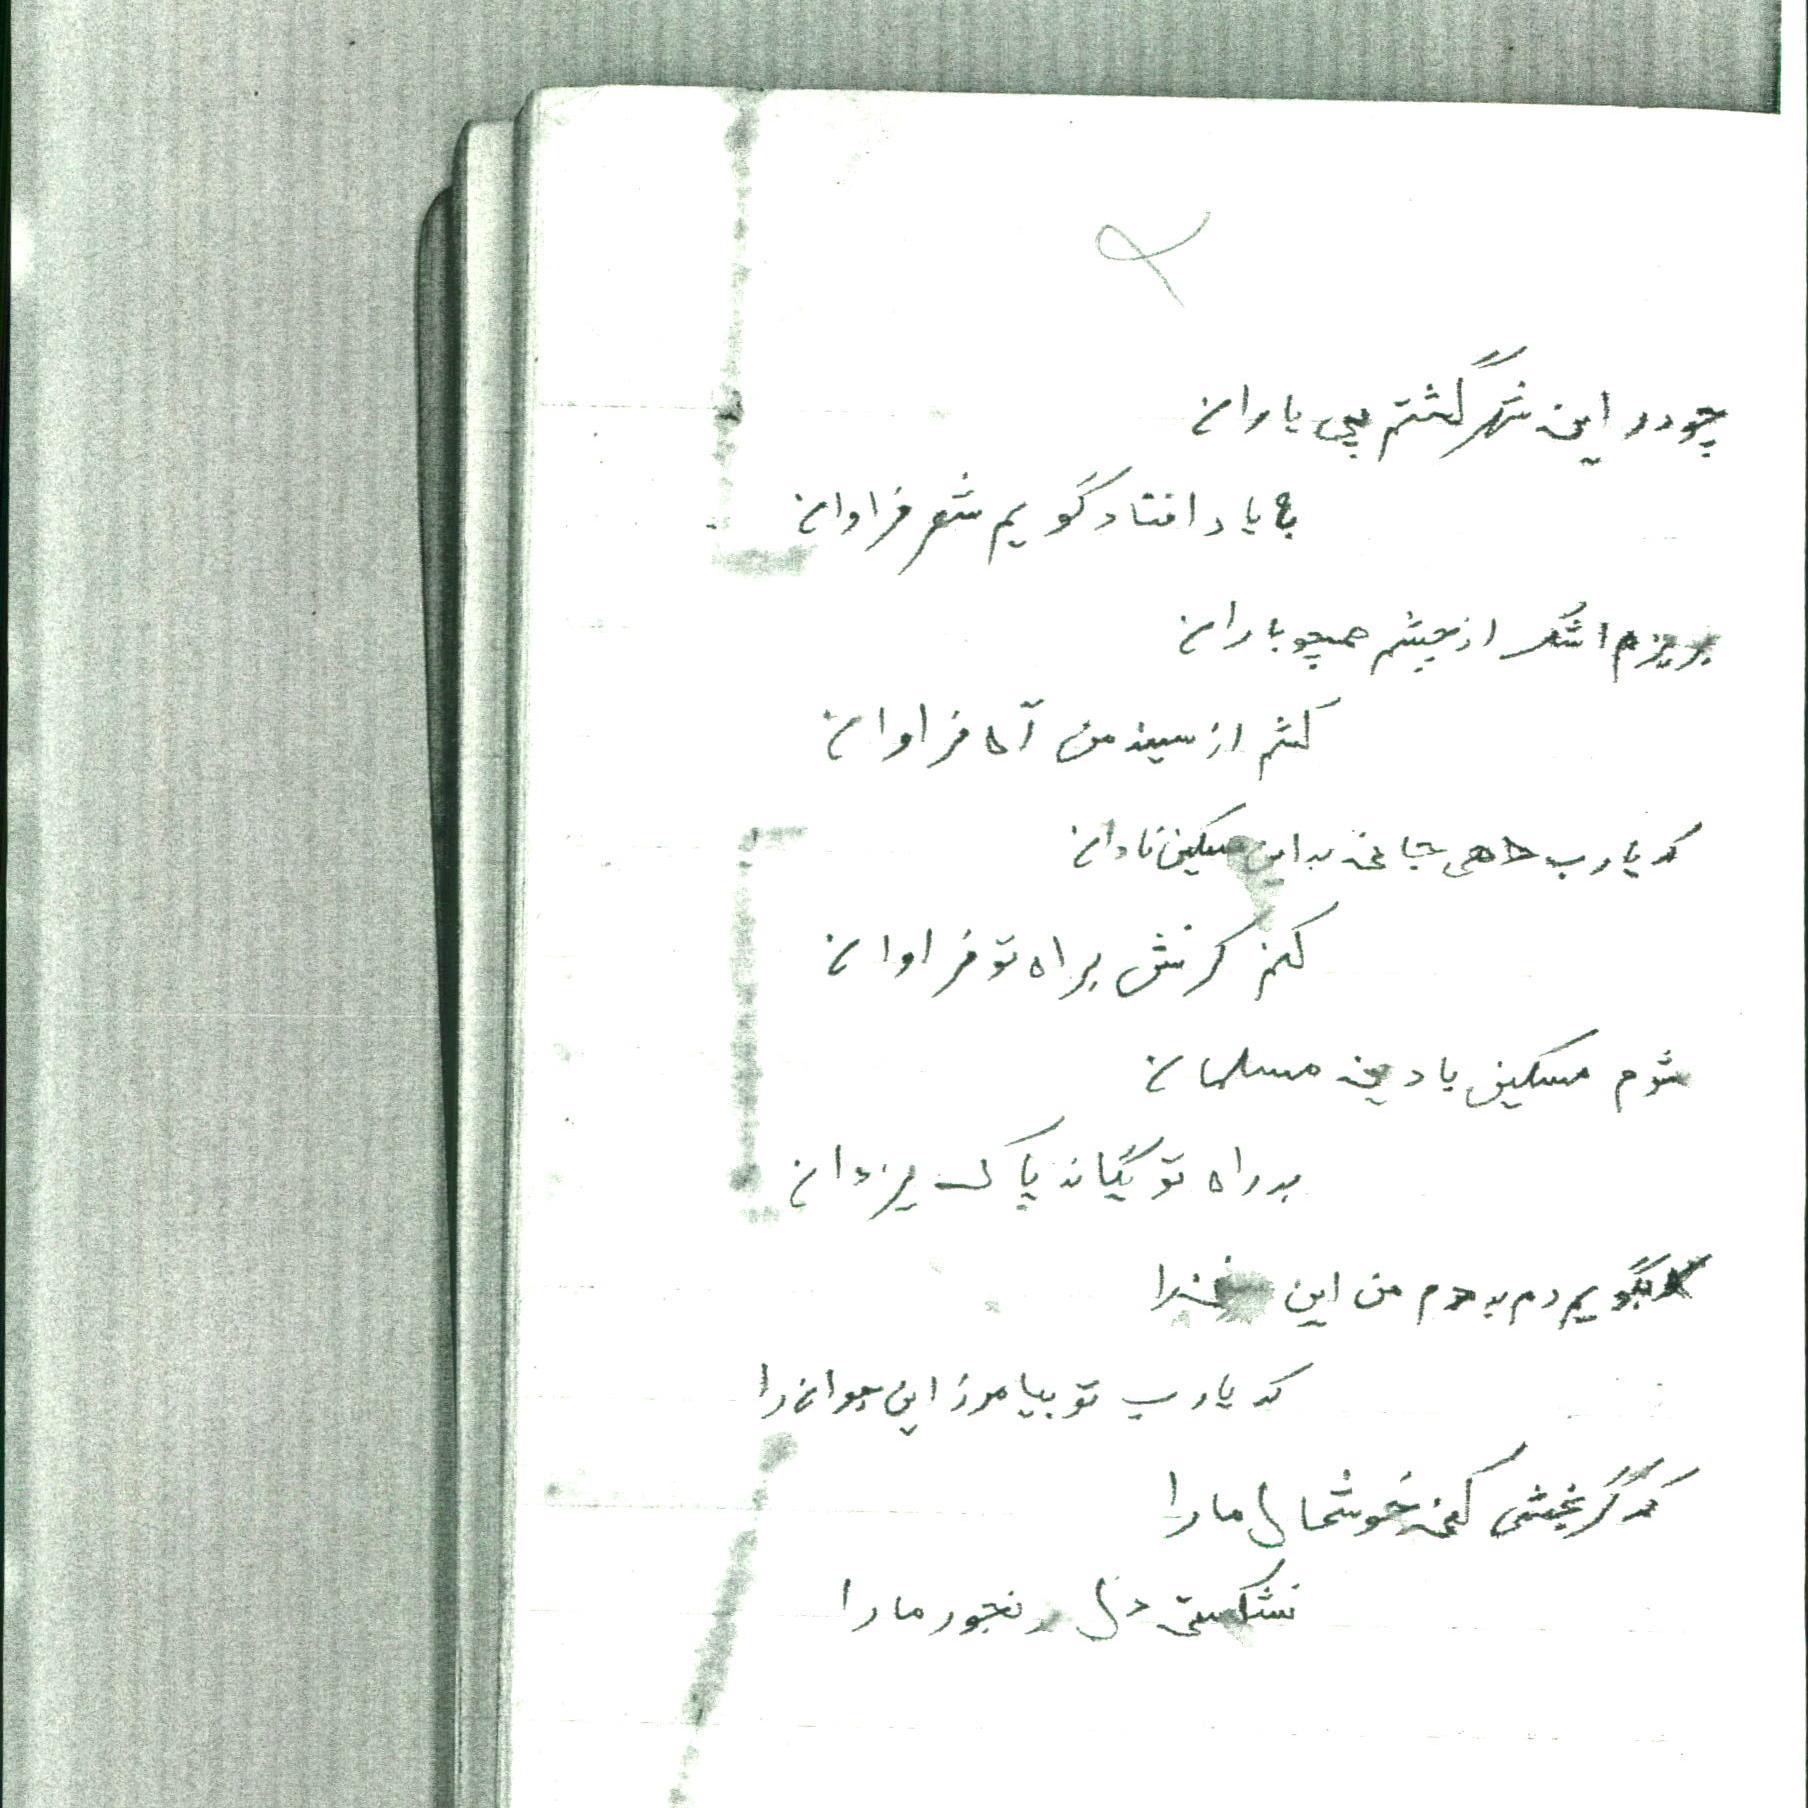 چو در این شهر گشتم بی یاران
به یاد افتاد گویم شعر فراوان
بریزم اشک از چشم همچو باران
کشم از سینه من آه فراوان
که یا رب جانی به این مسکین نادان
کنم کرنش براه تو فراوان
شوم مسکین با دین مسلمان
به راه تو یگانه پاک یزدان
بگویم دم به دم من این سخن را
که یا رب تو بیامرز این جوان را
که گر بخشی کنی خوشحال ما را
نشکستی دل رنجور ما را